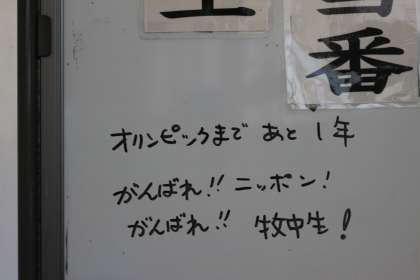 番
オリンピックまで あと 1年
がんばれ!! ニッポン!
がんばれ!! 牧中生!